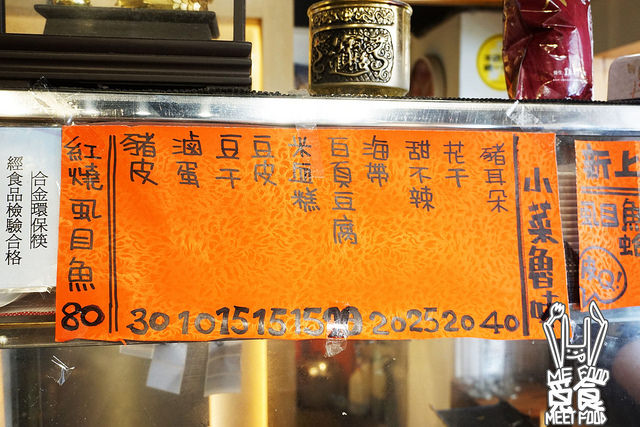 小菜魯味
豬耳朵 40
花干 20
甜不辣 25
海帶 20
百頁豆腐
米血糕 15
豆皮 15
豆干 15
滷蛋 10
豬皮 30
紅燒虱目魚 80
合金環保筷
經食品檢驗合格
新上
MEET FOOD